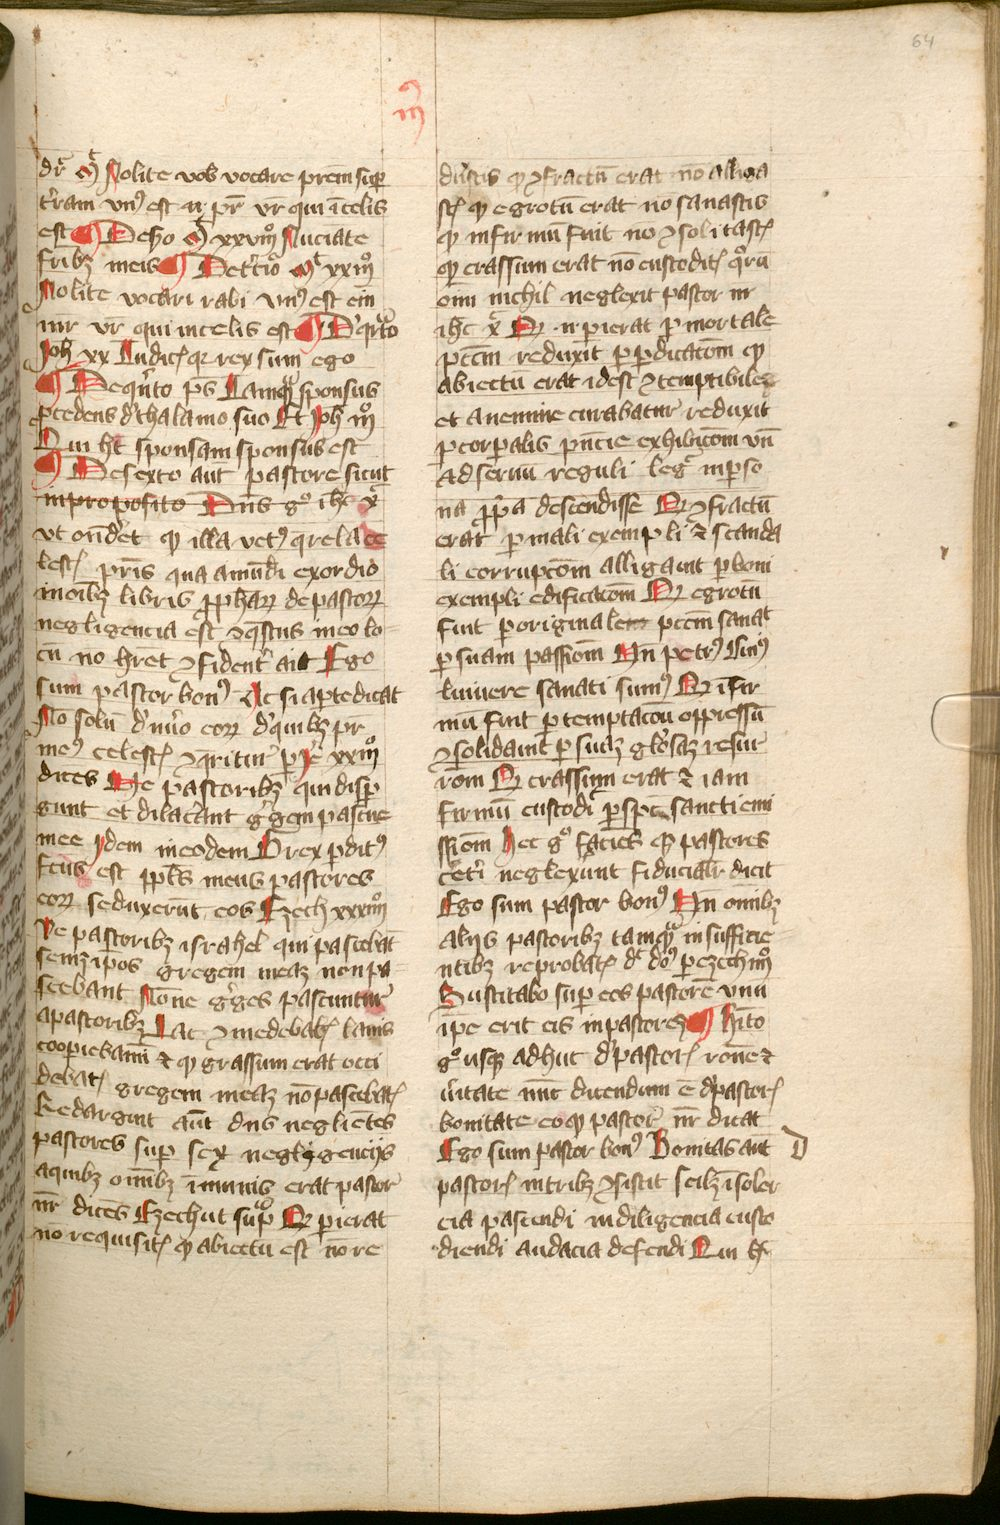 64
m⁹
dr̄ Mt Nolite vob vocare prēm sup
t̄ram vn⁹ est .n. pr̄ vr̄ qui ī celis
est ¶ De ho Mt xxviij° Nūciate
frībꝫ meis ¶ De tercio Mt xxiij°
Nolite vocari rabi vn⁹ est eīn
mr̄ vr̄ qui in celis est ¶ De qrto
Joh xx Indicꝭ qꝛ rex sum ego
¶ De qn̄to ps Tamqᵃ sponsus
ꝓcedens d̓ thalamo suo Et Joh iij°
Qui ht̄ sponsam sponsus est
¶ De sexto aut pastore sicut
in proposito Dn̄s gᵒ ihc xᵃ
vt ond̓et ꝙ illa vet⁹ q̄rela ce
lestꝭ pr̄is qua a mūdi exordio
in oībꝫ libris ꝓphaꝝ de pastoꝝ
negligencia est ꝯq̄stus in eo lo-
cū no hr̄et ꝯfident̓ ait Ego
sum pastor bon⁹ Ac si apte dicat
No solū d̓ nūo eoꝝ d̓ quibꝫ pr̄
me⁹ celestꝭ ꝯq̄ritur p Je xxiij°
dices Ve pastoribꝫ qui disp̄
gunt et dilac̄ant g̓gem pascue
mee Jdem in eodem Grex ꝑdit⁹
fcūs est ppl̄s meus pastores
eoꝝ seduxerūt eos Ezech xxxiiij°
Ve pastoribꝫ israhel qui pascebāt
semꝫipos gregem meūꝫ non pa-
scebant None g̓ges pascuntur
a pastoribꝫ Lac ꝯmedebatꝭ lanis
coopiebamī ⁊ qᵒ grassum erat occi
debatꝭ gregem meūꝫ nō pascebatꝭ
Redarguit aūt dn̄s neglientes
pastores sup̄ sex negligencijs
a quibꝫ oīnibꝫ īmunis erat pastor
nr̄ dicens Ezech ut supᵃ Qꝫ pierat
no requisitꝭ ꝙ abiectū est nō re
duxistis ꝙ ꝯfractū erat nō alliga
stꝭ ꝙ egrotū erat no sanastis
ꝙ infirmū fuit no ꝯsolitastꝭ
ꝙ crassum erat nō custoditꝭ qᵒrū
oīm nichil neglexit pastor nr̄
ihc xᵃ Qꝫ .n. pierat ꝑ mortale
pcc̄m reduxit ꝑ p̄dicacōm ꝙ
abiectū erat id est ꝯtemptibile
et a nemine curabatur reduxit
ꝑ corꝑalis pn̄cie exhibicōm vn̄
ad seruū reguli legr̄ in perso
na ꝓpa descendisse Qꝫ ꝯfractū
erat ꝑ mali exempli ⁊ scanda
li corrupcōm alligauit ꝑ boni
exempli edificacōm Qꝫ egrotū
fuit ꝑ originale pcc̄m sanat
ꝑ suam passiom Vn̄ petr⁹ Cui⁹
liuore sanati sum⁹ Qꝫ īfir
mū fuit ꝑ temptacōm oppressū
ꝯsolidauit ꝑ suāꝫ gl̓osāꝫ resur
rom Qꝫ crassum erat ⁊ iam
firmū custodīt ꝑ spc̄ sancti emi
ssiom Hec gᵒ facies ꝙ pastores
cet̓i neglexunt fiducialr̄ dicit
Ego sum pastor bon⁹ Vn̄ omībꝫ
alijs pastoribꝫ tamqᵃ insufficie
ntibꝫ reprobatꝭ dt̄ do⁹ ꝑ ezech iij°
Suscitabo sup̄ eos pastorē vnū
ipe erit eis in pastorem ¶ Hīto
gᵒ usqꝫ adhuc d̓ pastorꝭ rone ⁊
ūitate nūc dicendum ē d̓ pastorꝭ
bonitate eo ꝙ pastor nr̄ dicat
Ego sum pastor bon⁹ Bonitas aūt D
pastorꝭ in tribꝫ ꝯsistit scilꝫ ī soler
cia pascendi in diligencia custo
diendi audacia defendi Qui ht̄